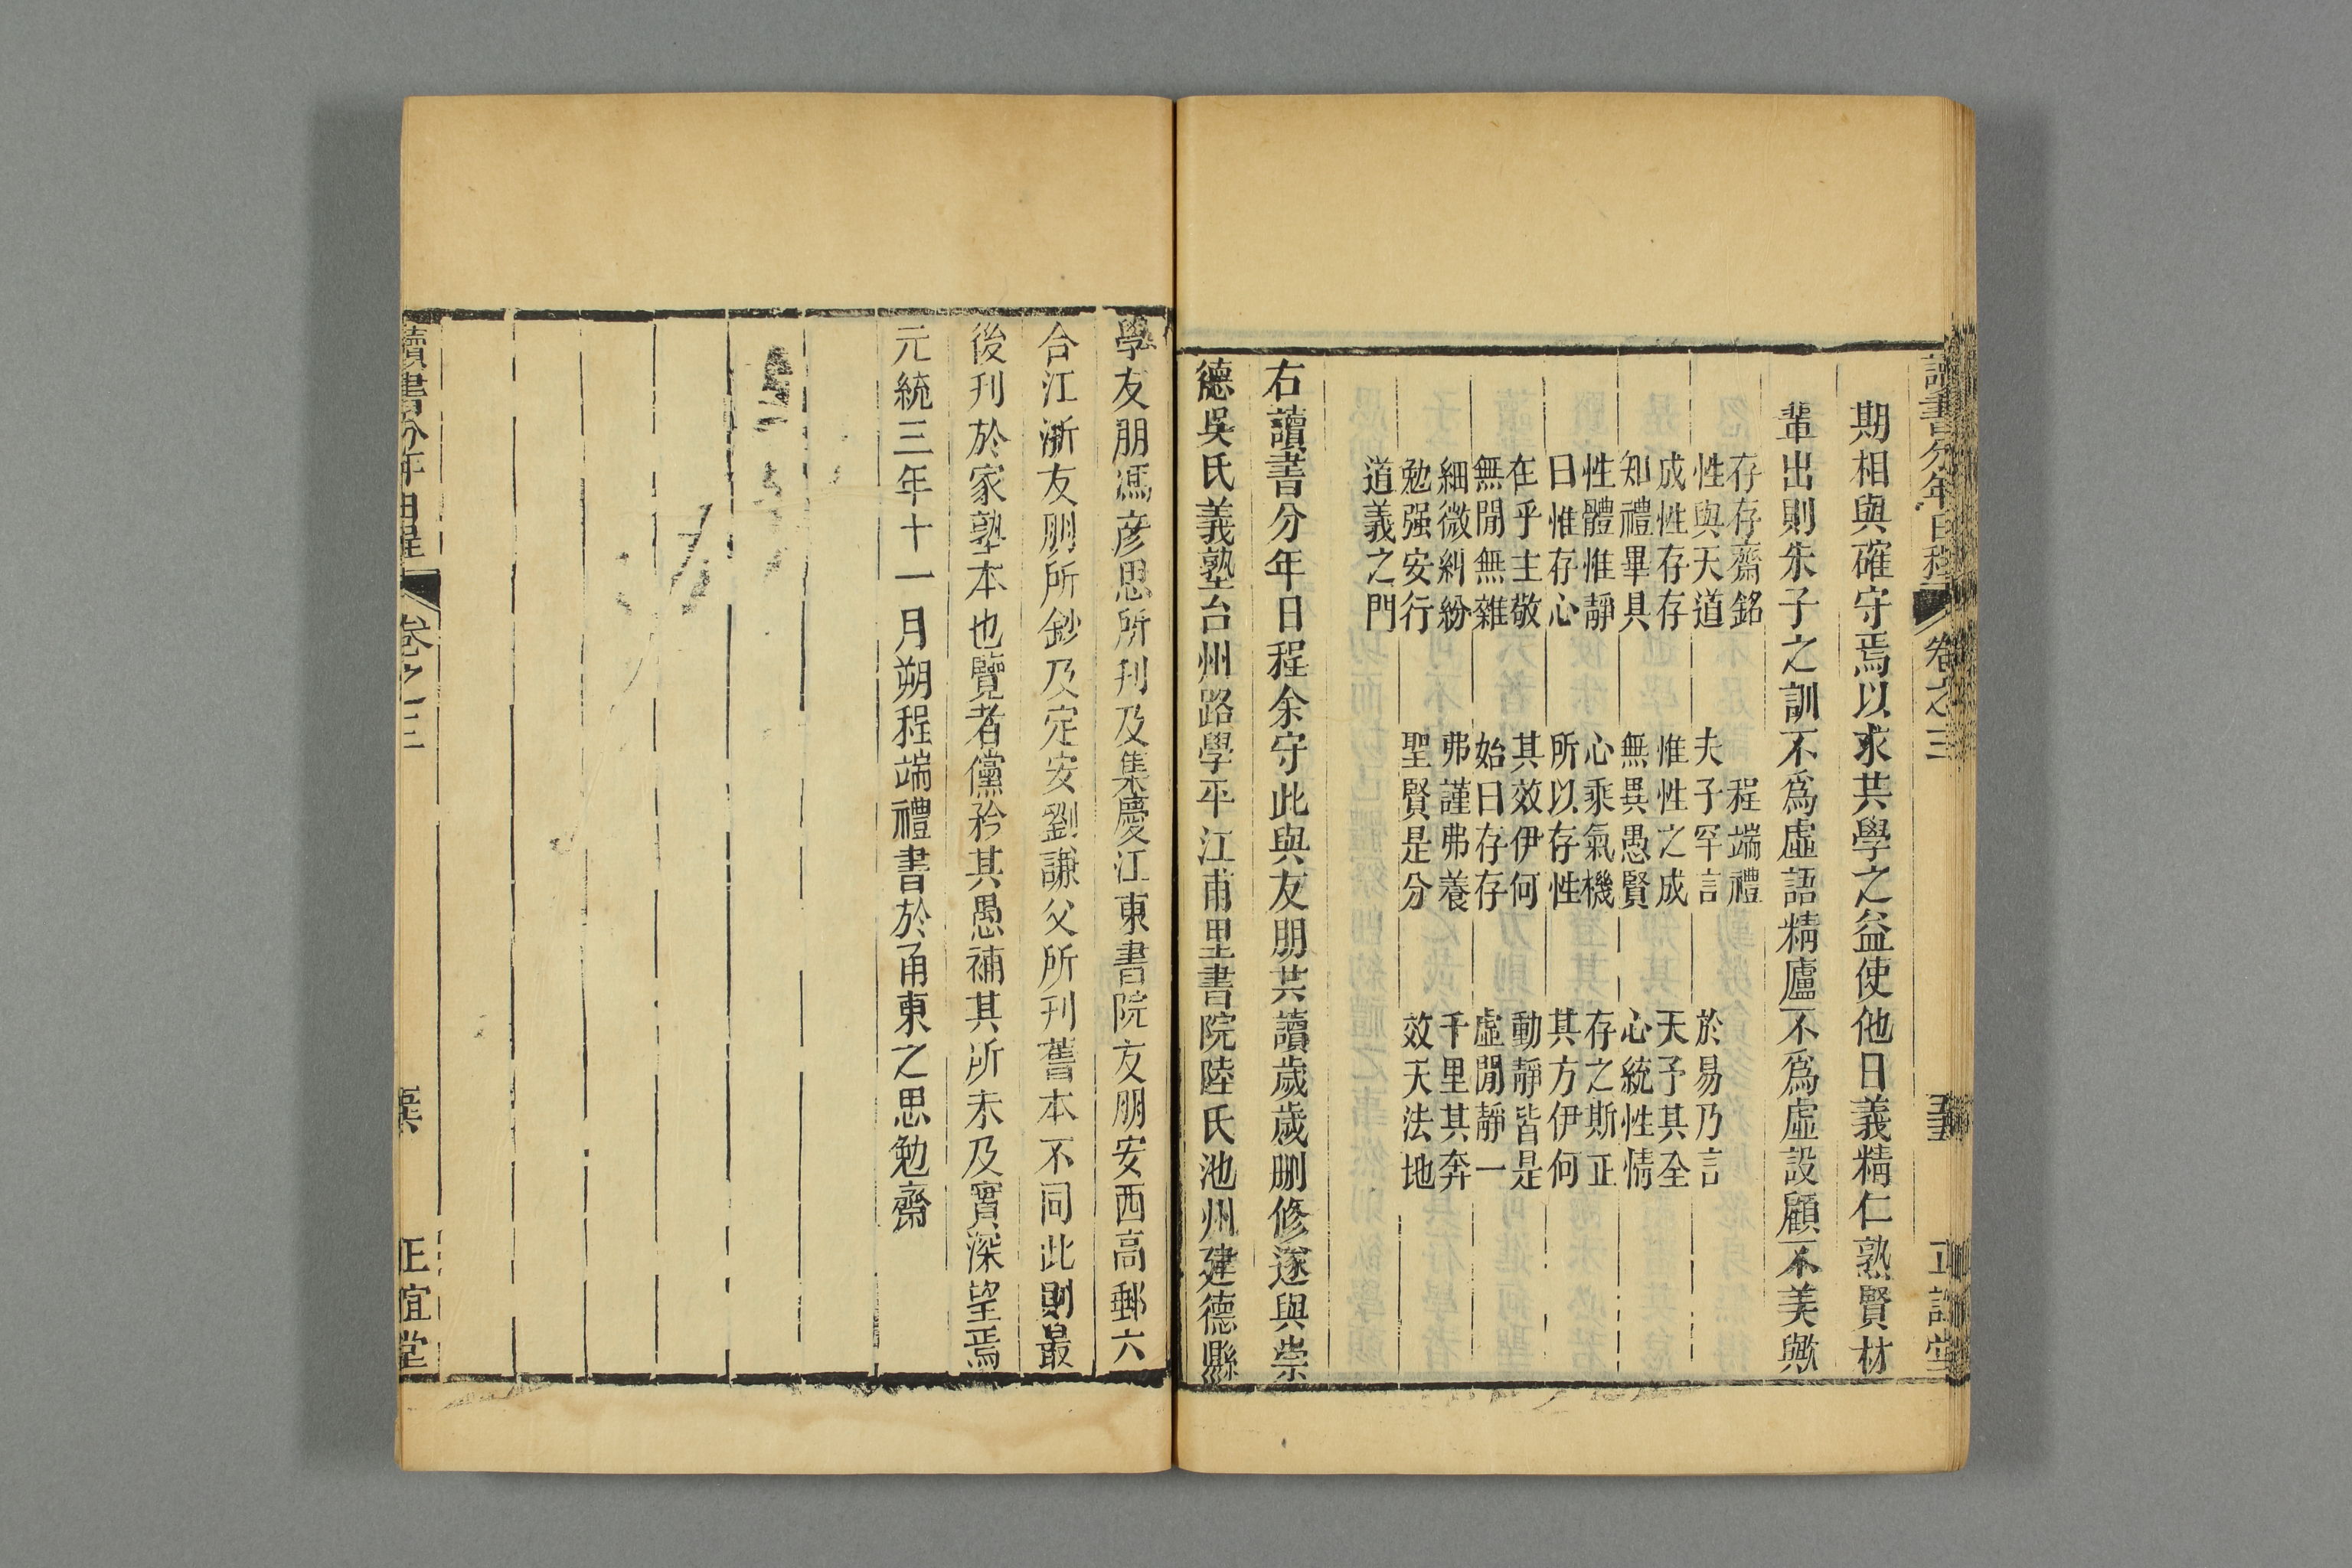 讀書分年日程 卷之三 正誼堂
期相與確守焉以求共學之益使他日義精仁熟賢材
輩出則朱子之訓不爲虛語精廬不爲虛設顧不美歟
存存齋銘 程端禮
性與天道 夫子罕言 於易乃言
成性存存 惟性之成 天予其全
知禮畢具 無異愚賢 心統性情
性體惟靜 心乘氣機 存之斯正
曰惟存心 所以存性 其方伊何
在乎主敬 其效伊何 動靜皆是
無閒無雜 始曰存存 虛閒靜一
細微糾紛 弗謹弗養 千里其奔
勉强安行 聖賢是分 效天法地
道義之門
右讀書分年日程余守此與友朋共讀歲歲刪修遂與崇
德吳氏義塾台州路學平江甫里書院陸氏池州建德縣
學友朋馮彥思所刊及集慶江東書院友朋安西高郵六
合江浙友朋所鈔及定安劉謙父所刊舊本不同此則最
後刊於家塾本也覽者儻矜其愚補其所未及實深望焉
元統三年十一月朔程端禮書於甬東之思勉齋
讀書分年日程 卷之三 正誼堂